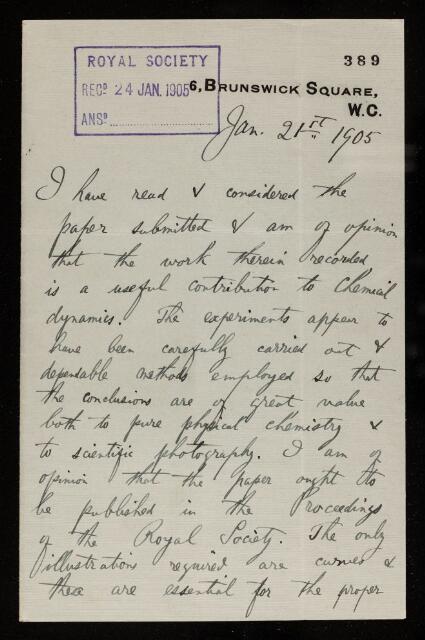 ROYAL SOCIETY
RECD 24 JAN. 1905
ANSD
389
6, BRUNSWICK SQUARE,
W.C.
Jan. 21st 1905
I have read & considered the
paper submitted & am of opinion
that the work therein recorded
is a useful contribution to Chemical
dynamics. The experiments appear to
have been carefully carried out &
dependable methods employed so that
the conclusions are of great value
both to pure physical chemistry &
to scientific photography. I am of
opinion that the paper ought to
be published in the Proceedings
of the Royal Society. The only
illustrations required are curves &
these are essential for the proper